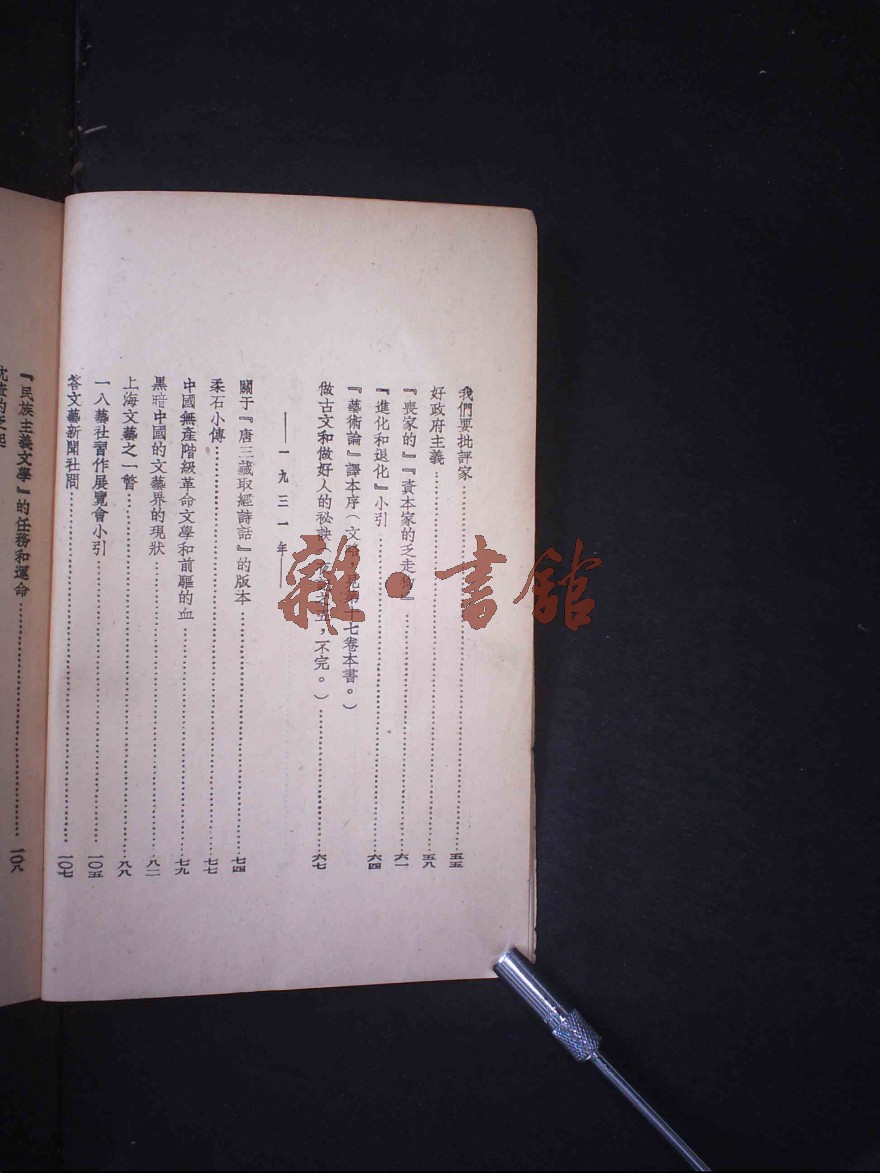 我們要批評家……五五
好政府主義……五八
『喪家的』『資本家的乏走狗』……六一
『進化和退化』小引……六四
『藝術論』譯本序(文略,見第十七卷本書。)
做古文和做好人的秘訣(夜記之五,不完。)……六七
——一九三一年——
關于『唐三藏取經詩話』的版本……七四
柔石小傳……七七
中國無產階級革命文學和前驅的血……七九
黑暗中國的文藝界的現狀……八二
上海文藝之一瞥……八八
一八藝社習作展覽會小引……一〇五
答文藝新聞社問……一〇七
『民族主義文學』的任務和運命……一〇八
雜·書館